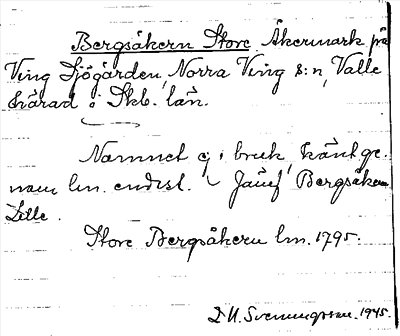 Bergsåkern Store Åkermark på
Ving Sjögården, Norra Ving s:n, Valle
härad i Skb. län.
Namnet ej i bruk, känt ge-
nom lm. endast. Jämf Bergsåkern
Lille.
Store Bergsåkern lm. 1795.
Svenungsson. 1945.